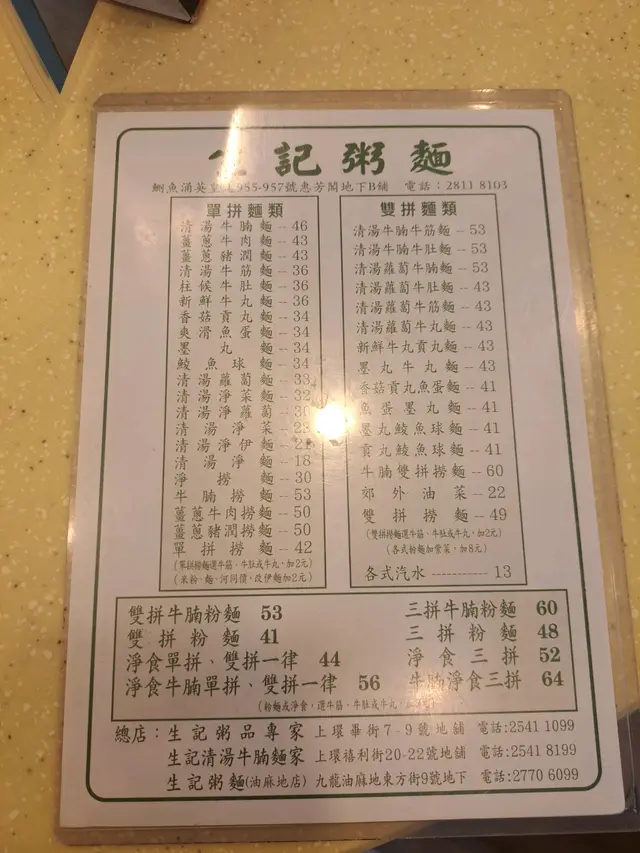 生記粥麵
鰂魚涌英皇道955-957號惠芳閣地下B舖 電話：2811 8103
單拼麵類
清湯牛腩麵--46
薑蔥牛肉麵--43
薑蔥豬潤麵--43
清湯牛筋麵--36
柱候牛肚麵--36
新鮮牛丸麵--36
香菇貢丸麵--34
爽滑魚蛋麵--34
墨丸麵--34
鯪魚球麵--34
清湯蘿蔔麵--33
清湯淨菜麵--32
清湯淨蘿蔔--30
清湯淨菜--
清湯淨伊麵--
清湯淨麵--18
淨撈麵--30
牛腩撈麵--53
薑蔥牛肉撈麵--50
薑蔥豬潤撈麵--50
單拼撈麵--42
(單拼撈麵選牛筋、牛肚或牛丸，加2元)
(米粉、麵、河同價，改伊麵加2元)
雙拼麵類
清湯牛腩牛筋麵--53
清湯牛腩牛肚麵--53
清湯蘿蔔牛腩麵--53
清湯蘿蔔牛肚麵--43
清湯蘿蔔牛筋麵--43
清湯蘿蔔牛丸麵--43
新鮮牛丸貢丸麵--43
墨丸牛丸麵--43
香菇貢丸魚蛋麵--41
魚蛋墨丸麵--41
墨丸鯪魚球麵--41
貢丸鯪魚球麵--41
牛腩雙拼撈麵--60
郊外油菜--22
雙拼撈麵--49
(雙拼撈麵選牛筋、牛肚或牛丸，加2元)
(各式粉麵加紫菜，加8元)
各式汽水-----------13
雙拼牛腩粉麵 53
雙拼粉麵 41
淨食單拼、雙拼一律 44
淨食牛腩單拼、雙拼一律 56
三拼牛腩粉麵 60
三拼粉麵 48
淨食三拼 52
牛腩淨食三拼 64
(粉麵或淨食，選牛筋、牛肚或牛丸，
總店：生記粥品專家 上環畢街7-9號地舖 電話:2541 1099
生記清湯牛腩麵家 上環禧利街20-22號地舖 電話:2541 8199
生記粥麵(油麻地店) 九龍油麻地東方街9號地下 電話:2770 6099